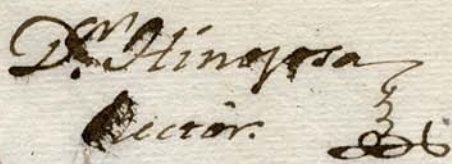 D.ʳ Hinojosa
Rector.